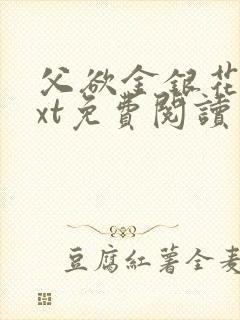 父欲金銀花
xt免費閱讀
豆腐紅薯全麦